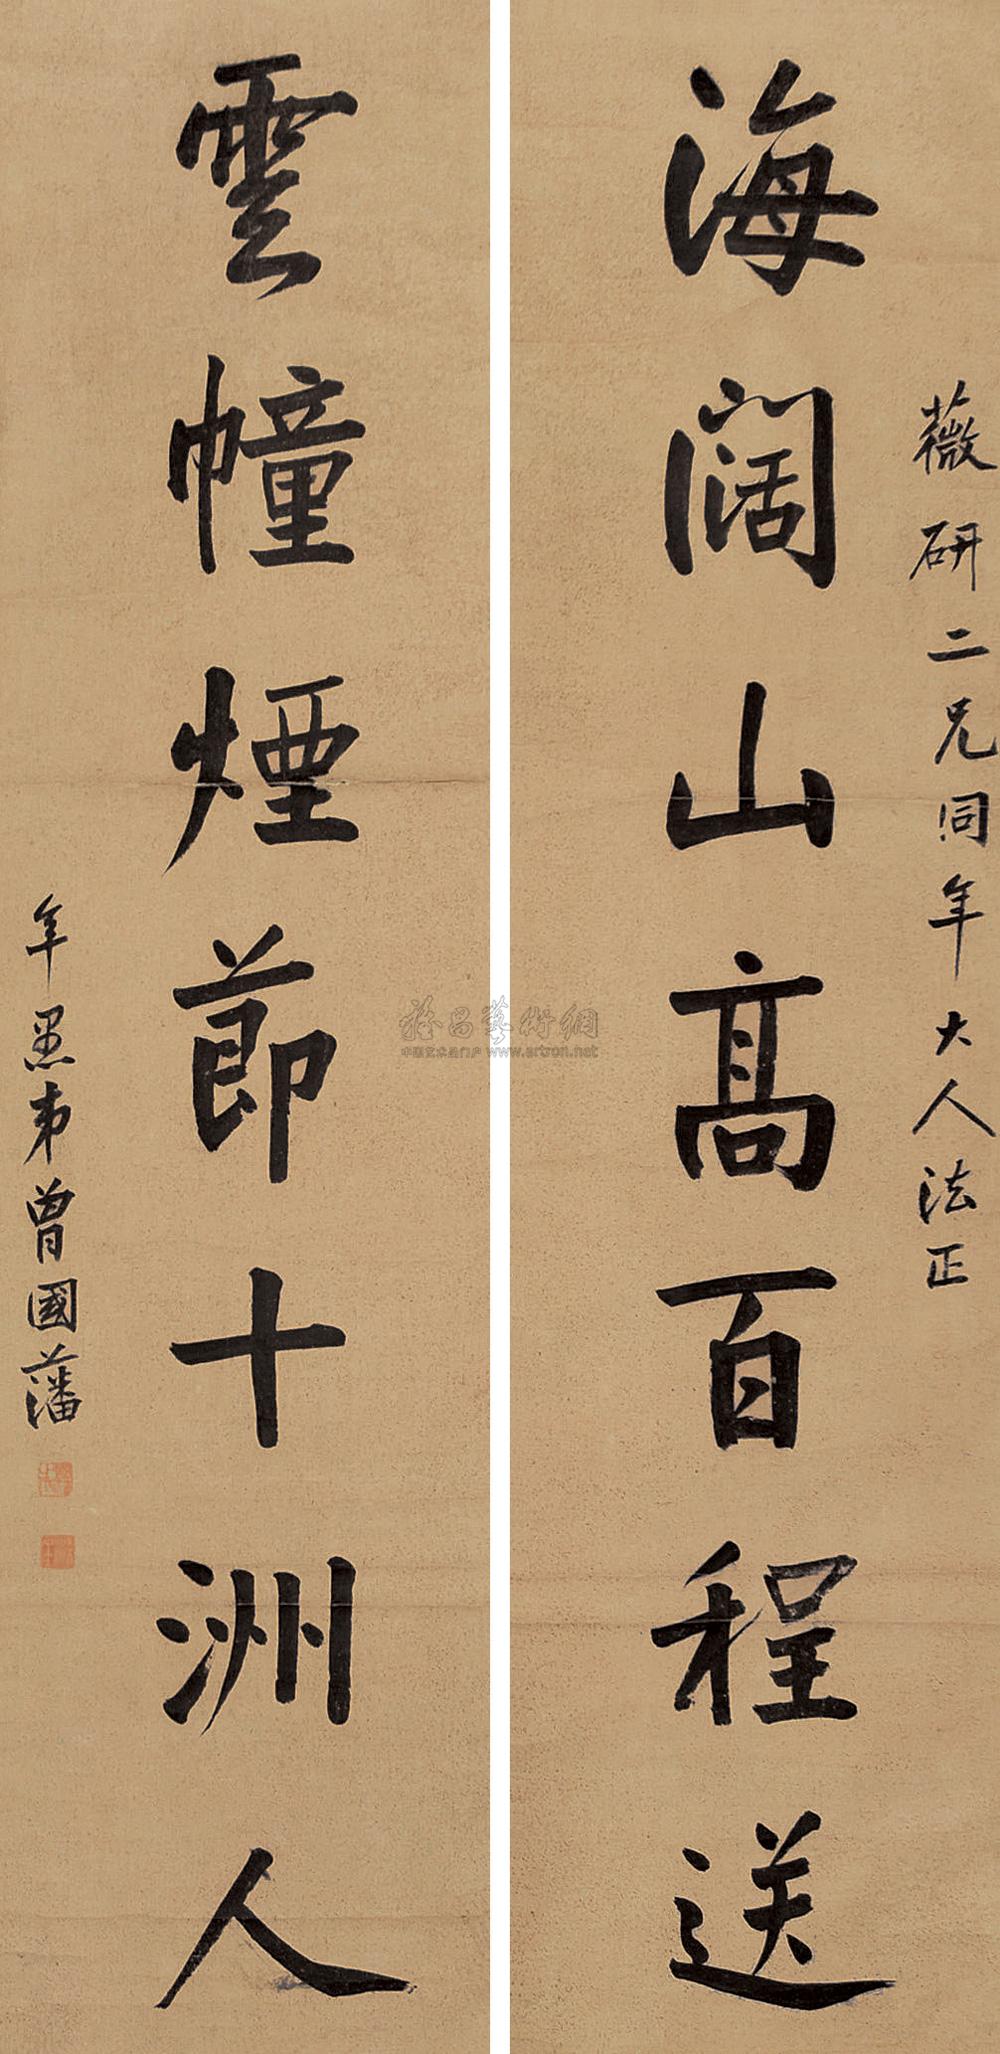 薇研二兄同年大人法正
海阔山高百程送
雲幢煙節十洲人
年愚弟曾國藩
雅昌藝術網
中国艺术品门户 www.artron.net